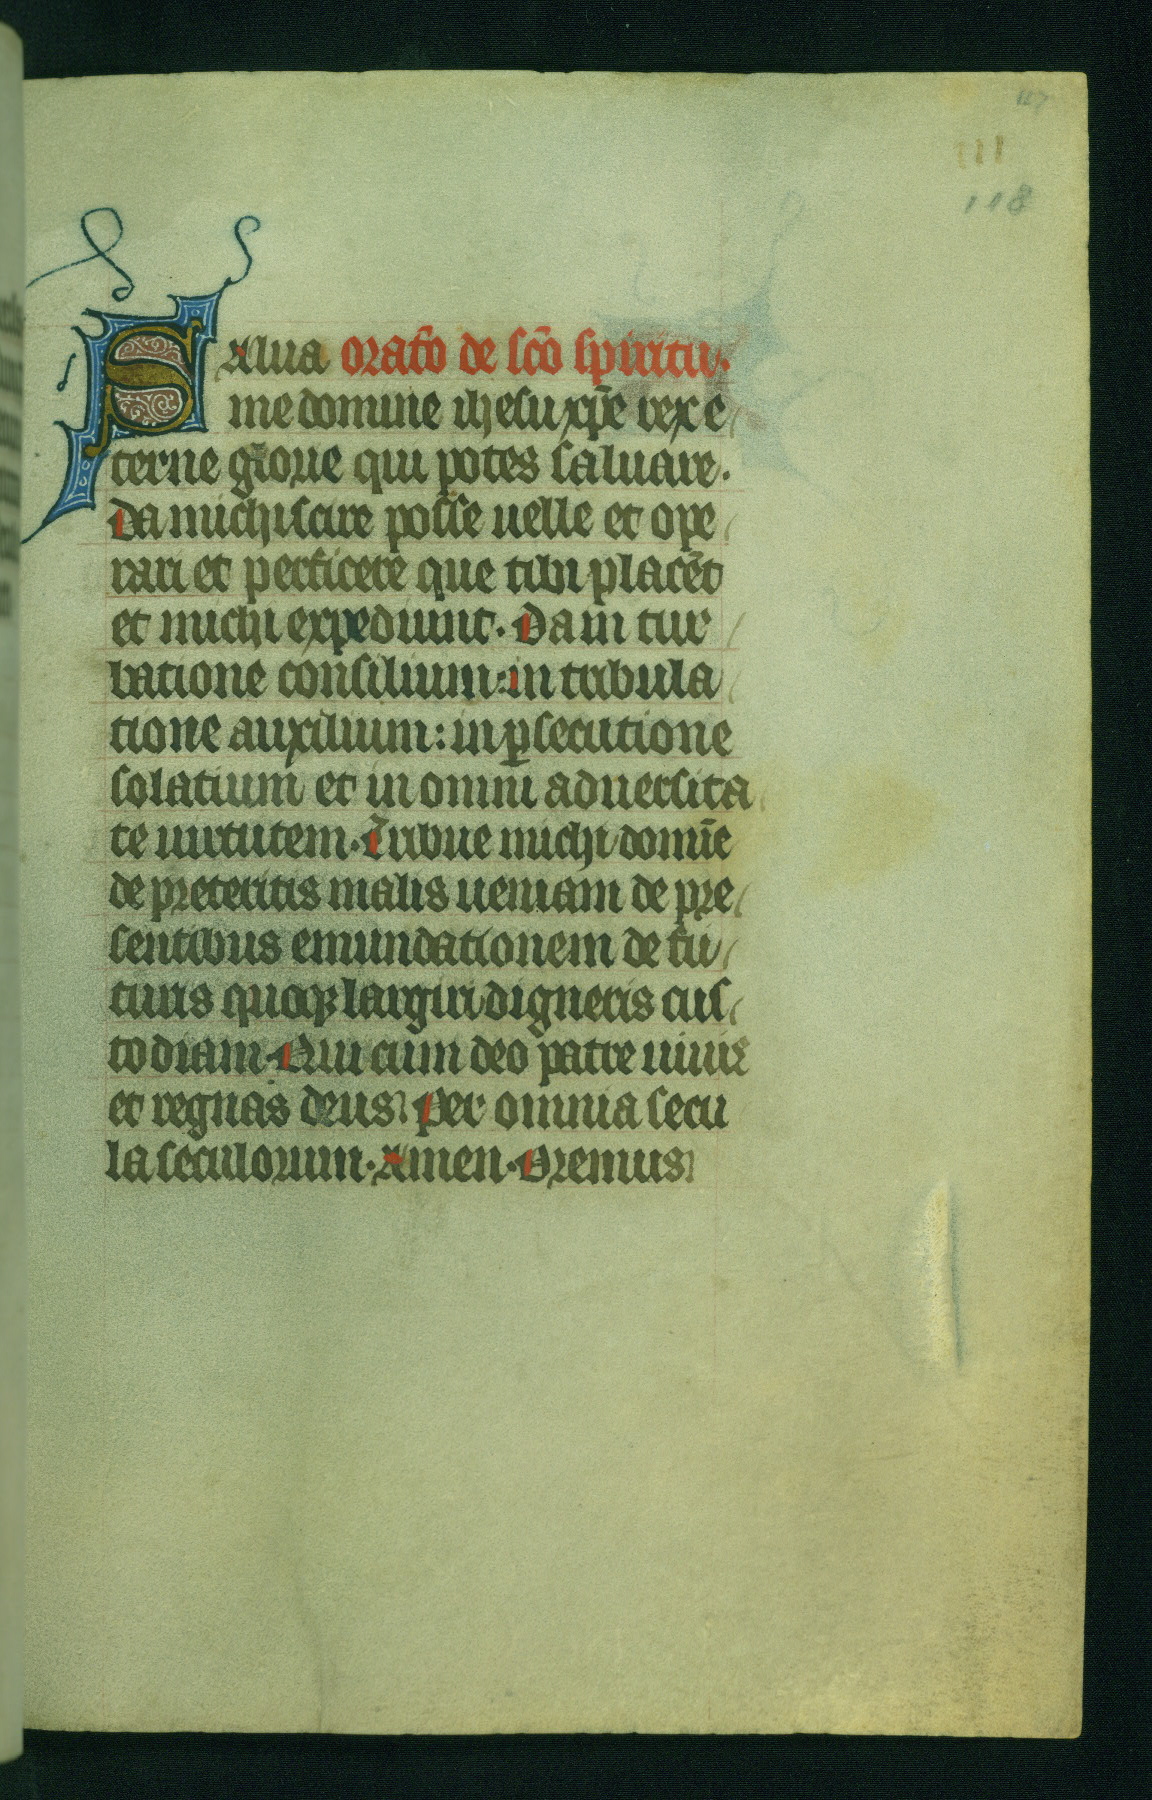 118
SAlua orat̄o de sc̄o spiritu.
me domine ihesu xp̄e rex e
terne gl̄orie qui potes saluare.
Da michi scire posse uelle et ope
rari et perficere que tibi placēt
et michi expediunt. Da in tur
batione consilium: in tribula
tione auxilium: in ꝑsecutione
solatium et in omni aduersita
te uirtutem. Tribue michi domīe
de preteritis malis ueniam de pre
sentibus emundationem de fu
turis quoqꝫ largiri digneris cus
todiam. Qui cum deo patre uiuis
et regnas deus. Per omnia secu
la seculorum. Amen. Oremus